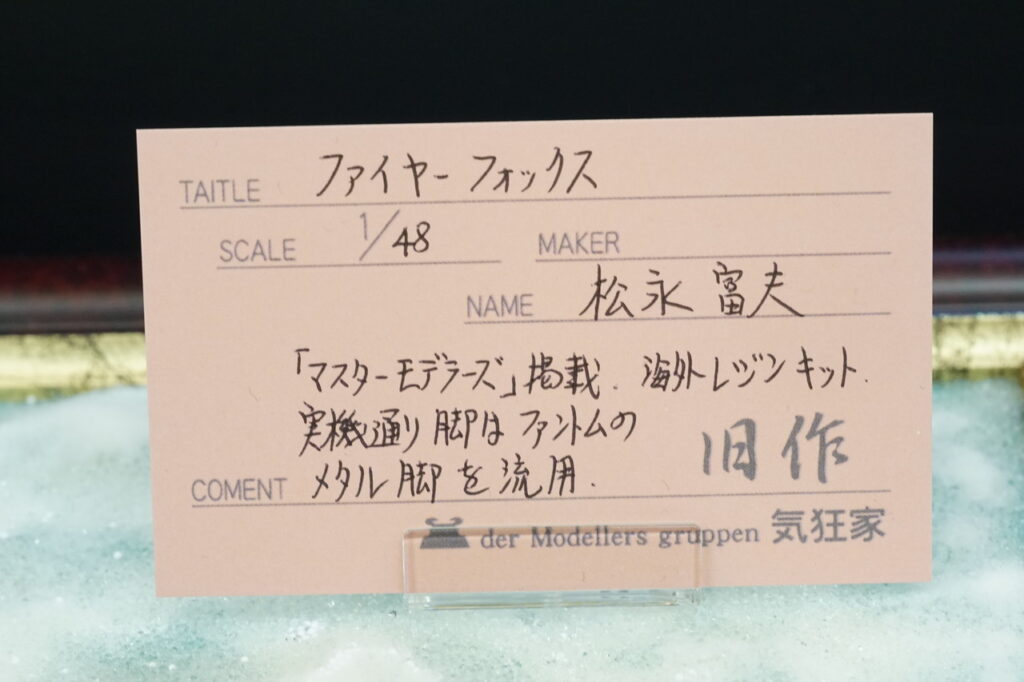 TAITLE ファイヤーフォックス
SCALE 1/48 MAKER
NAME 松永富夫
「マスターモデラーズ」掲載. 海外レジンキット.
実機通り脚はファントムの
COMENT メタル脚を流用.
旧作
der Modellers gruppen 気狂家